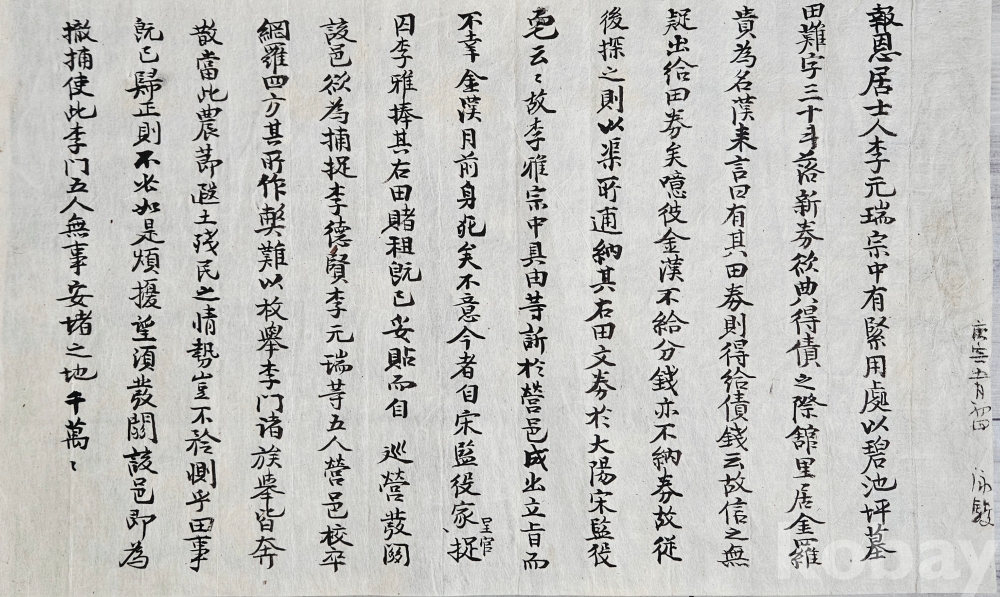 報恩居士人李元瑞宗中有緊用處以碧池坪墓
田難字三十斗落新券欲典得債之際舘里居金羅
貴為名漢来言曰有其田券則得給債錢云故信之無
疑出給田券矣噫彼金漢不給分錢亦不納券故從
後探之則以渠所逋納其右田文券於大陽宋監役
宅云〻故李雅宗中具由等訴於營邑成出立旨而
不幸金漢月前身死矣不意今者自宋監役家呈官捉
囚李雅捧其右田賭租旣已妥貼而自 巡營發關
該邑欲為捕捉李德賢李元瑞等五人營邑校卒
網羅四方其所作弊難以枚擧李门諸族擧皆奔
散當此農莭遐土殘民之情勢豈不矜惻乎田事
旣已歸正則不必如是煩擾望須發關該邑即為
撤捕使此李门五人無事安堵之地千萬〻
庚寅五月初四
kobay